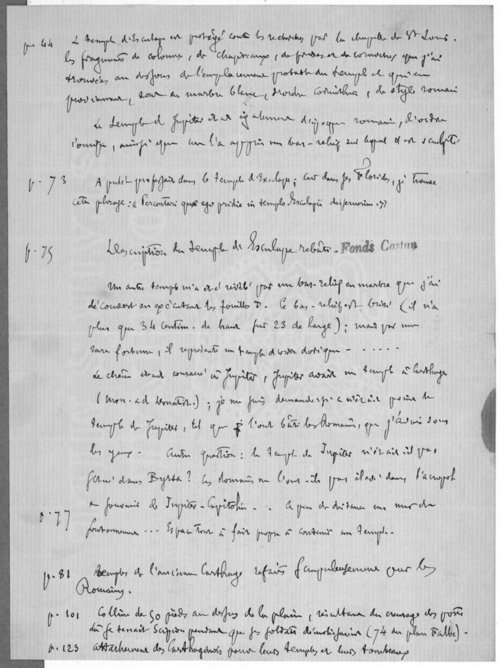 p. 44 Le temple d'Esculape est protégé contre les recherches par la chapelle de St Louis.
les fragments de colonnes, de chapiteaux, de frises et de corniches que j'ai
trouvées au dessous de l'emplacement probable du temple et qui en
proviennent, sont en marbre blanc, d'ordre corinthien, de style romain
Le temple de Jupiter était également d'époque romaine, d'ordre
ionique, ainsi que me l'a appris un bas-relief sur lequel il est sculpté
p. 73 Apulée professait dans le temple d'Esculape; car dans ses Florides, je trouve
cette phrase: « Percontari quae ego pridie in templo Esculapii disseruerim. »
p. 75 Description du temple de Esculape rebâti. Fonds Castan
Un autre temple m'a été révélé par un bas-relief en marbre que j'ai
découvert en exécutant les fouilles D. Ce bas-relief est brisé (il n'a
plus que 34 centim. de haut sur 23 de large); mais par une
rare fortune, il représente un temple d'ordre dorique - . . . . .
Le chêne était consacré à Jupiter, Jupiter avait un temple à Carthage
je me suis demandé si ce n'était point le
temple de Jupiter, tel que l'ont bâti les Romains, que j'avais sous
les yeux. Autre question: le temple de Jupiter n'était-il pas
situé dans Byrsa? Les Romains ne l'ont-ils pas élevé dans l'acropole
en souvenir de Jupiter-Capitolin . .
p. 77 A peu de distance un mur de
soutènement ... Espace tout à fait propre à contenir un temple.
p. 81 temples de l'ancienne Carthage refaits scrupuleusement par les
Romains.
p. 101 Colline de 50 pieds au dessus de la plaine, résultant du creusage des ports
où se tenait Scipion pendant que ses soldats (74 au plan Falbe) -
p. 123 attachement des Carthaginois pour leurs temples et leurs tombeaux